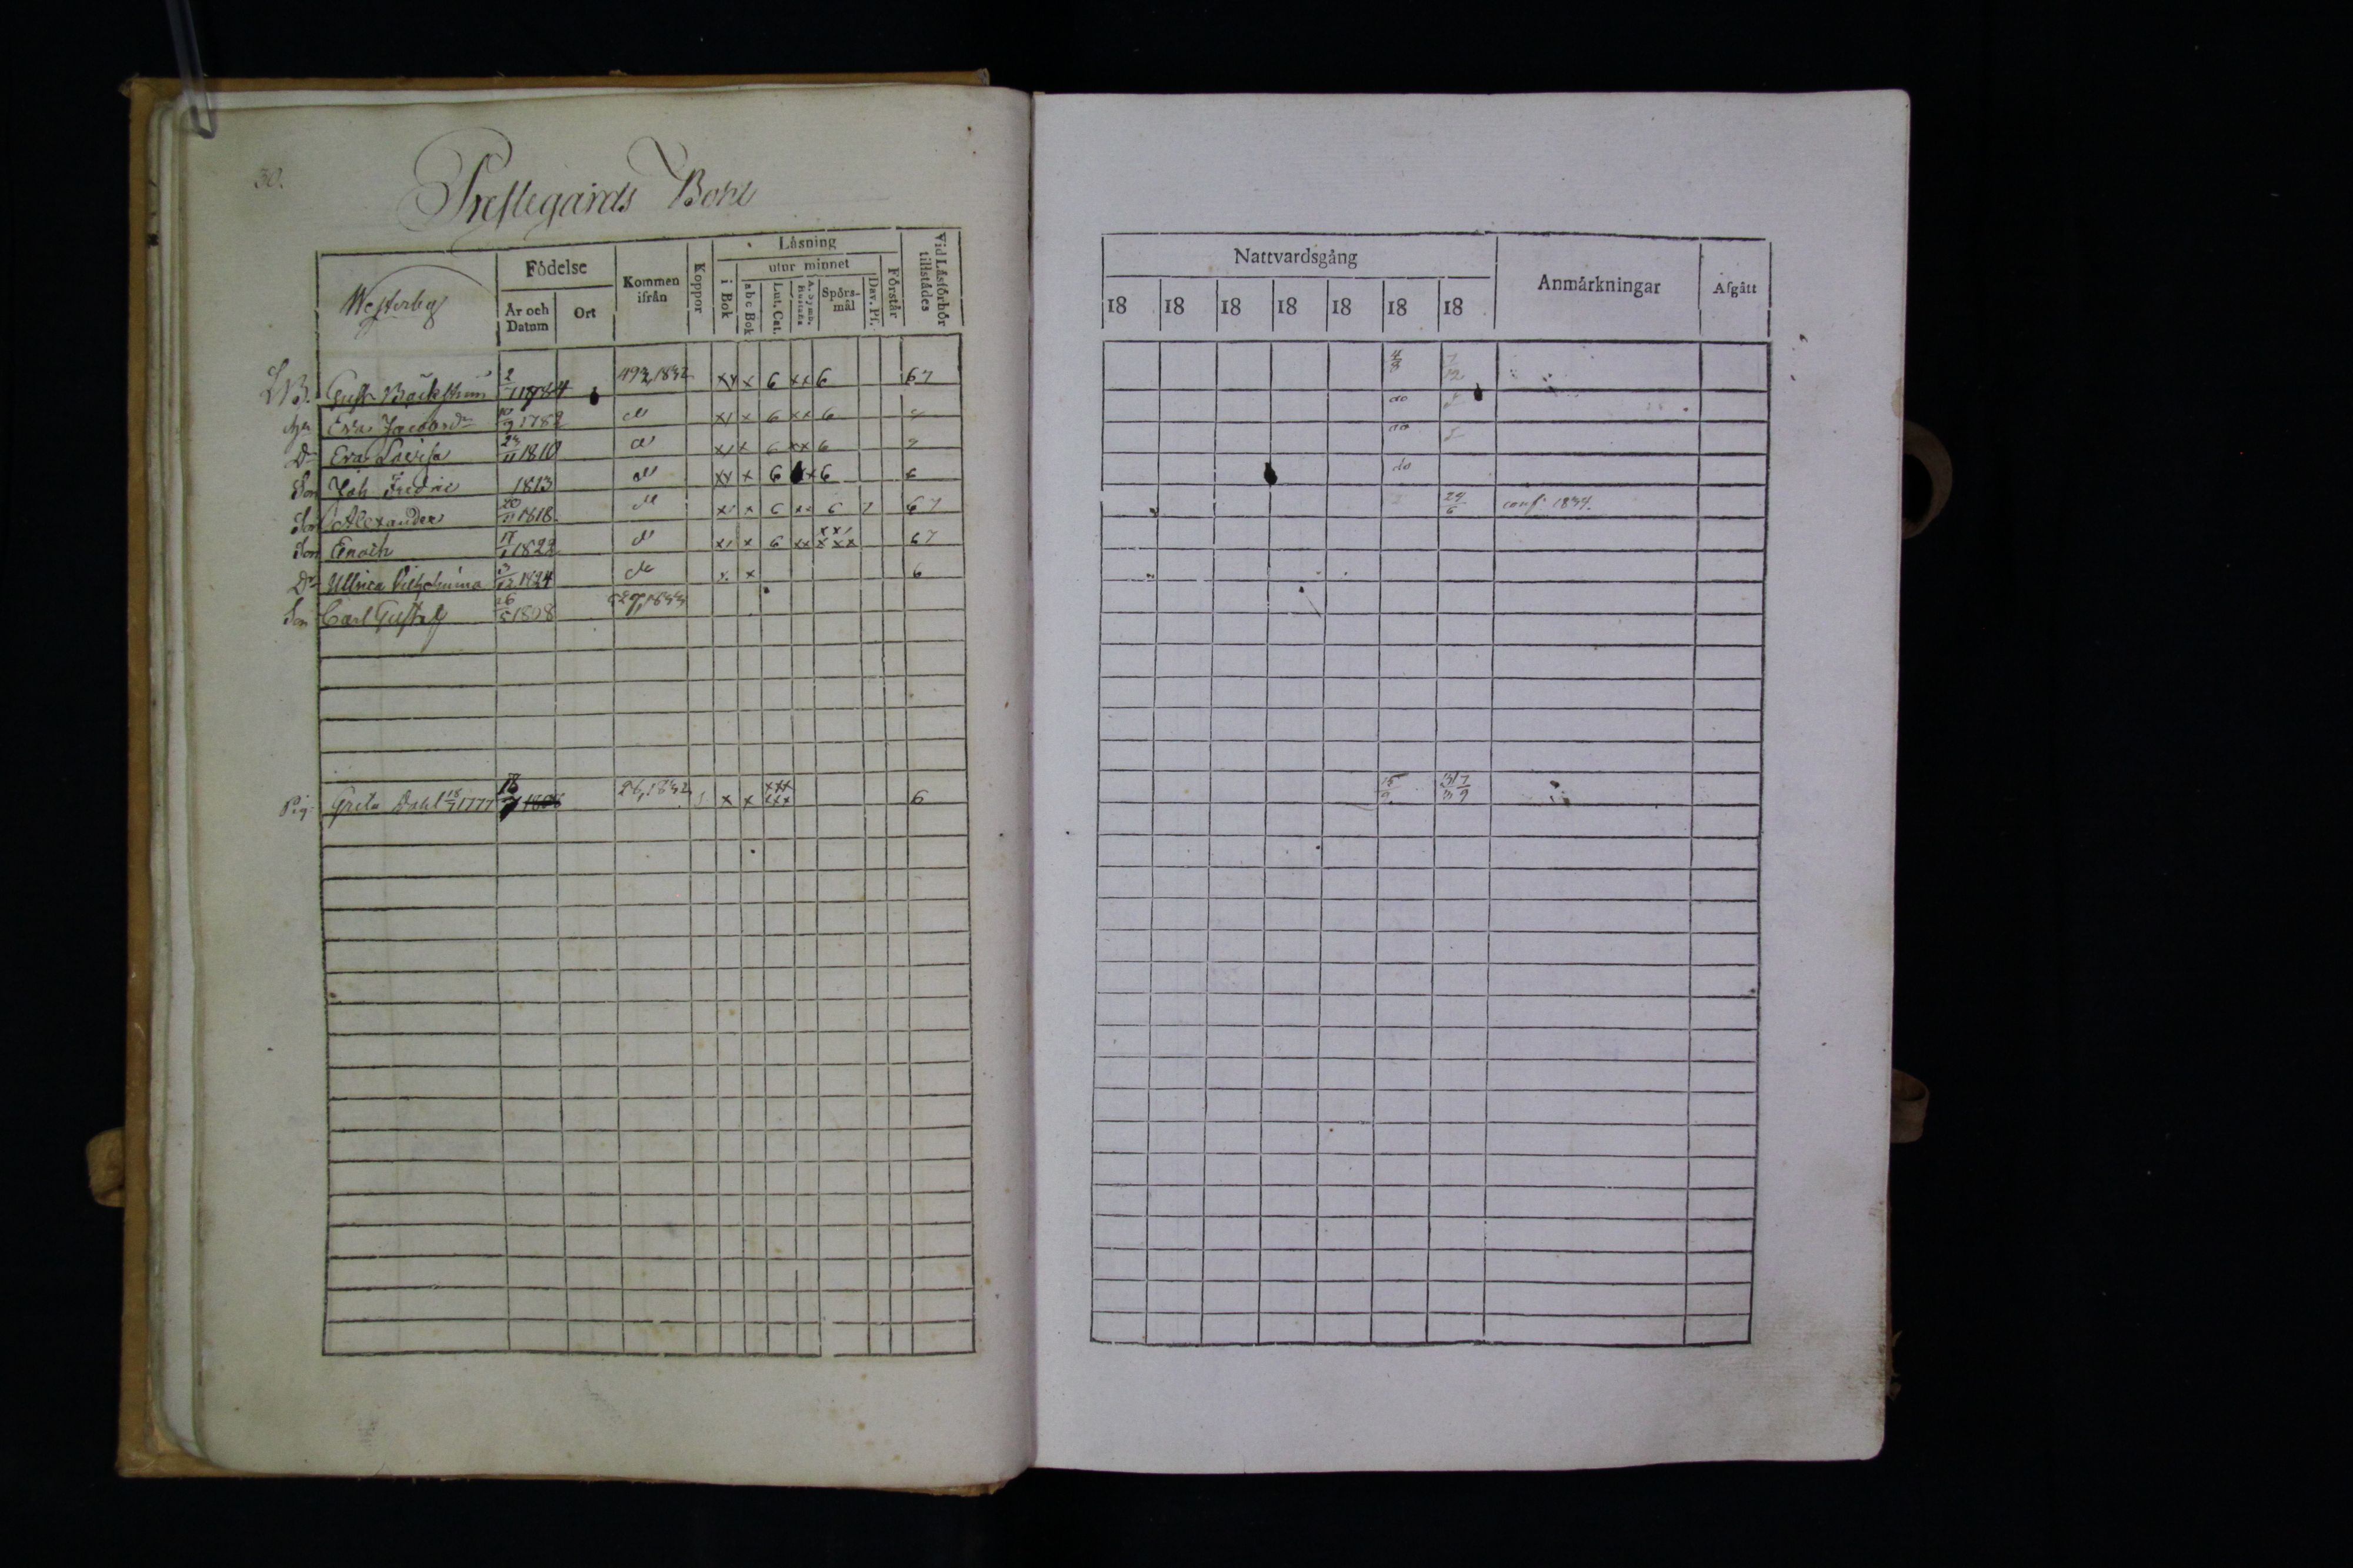 30.
Prestegårds Bohl
Westerby
Födelse
År och Datum
Ort
Kommen ifrån
Koppor
Låsning
i Bok
utur minnet
abc Bok
Lut. Cat.
Spörs-mål
Dav. Ps.
Förstår
Vid Låsförhör tillstädes
Gust. Bäckström 2/1 1784 493, 1832 xx x 6 xx 6 67
Eva Jacobsdr 10/9 1782 do xx x 6 xx 6
Dr Eva Lovisa 23/11 1810 do xx x 6 xx 6
Son Joh Fredric 1813 do xx x 6 x 6 6
Son Alexander 20/11 1818 do x 6 xx 6 67
Son Enoch 1822 do x 6 xx 67
Dr Ullrica Vilhelmina 3/12 1824 do x x 6
Son Carl Gustaf 26/5 1808 1833
Pig. Greta Dahl 18/7 1777 18/7 1808 26, 1832 x x xxx xxx 6
Nattvardsgång
18 18 18 18 18 18 18
Anmårkningar
Afgått
4/8
do
do
do
24/6 conf. 1834.